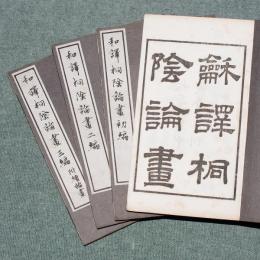 龢譯桐
陰論畫
和譯桐陰論畫初編
和譯桐陰論畫二編
和譯桐陰論畫三編 附續桐畫